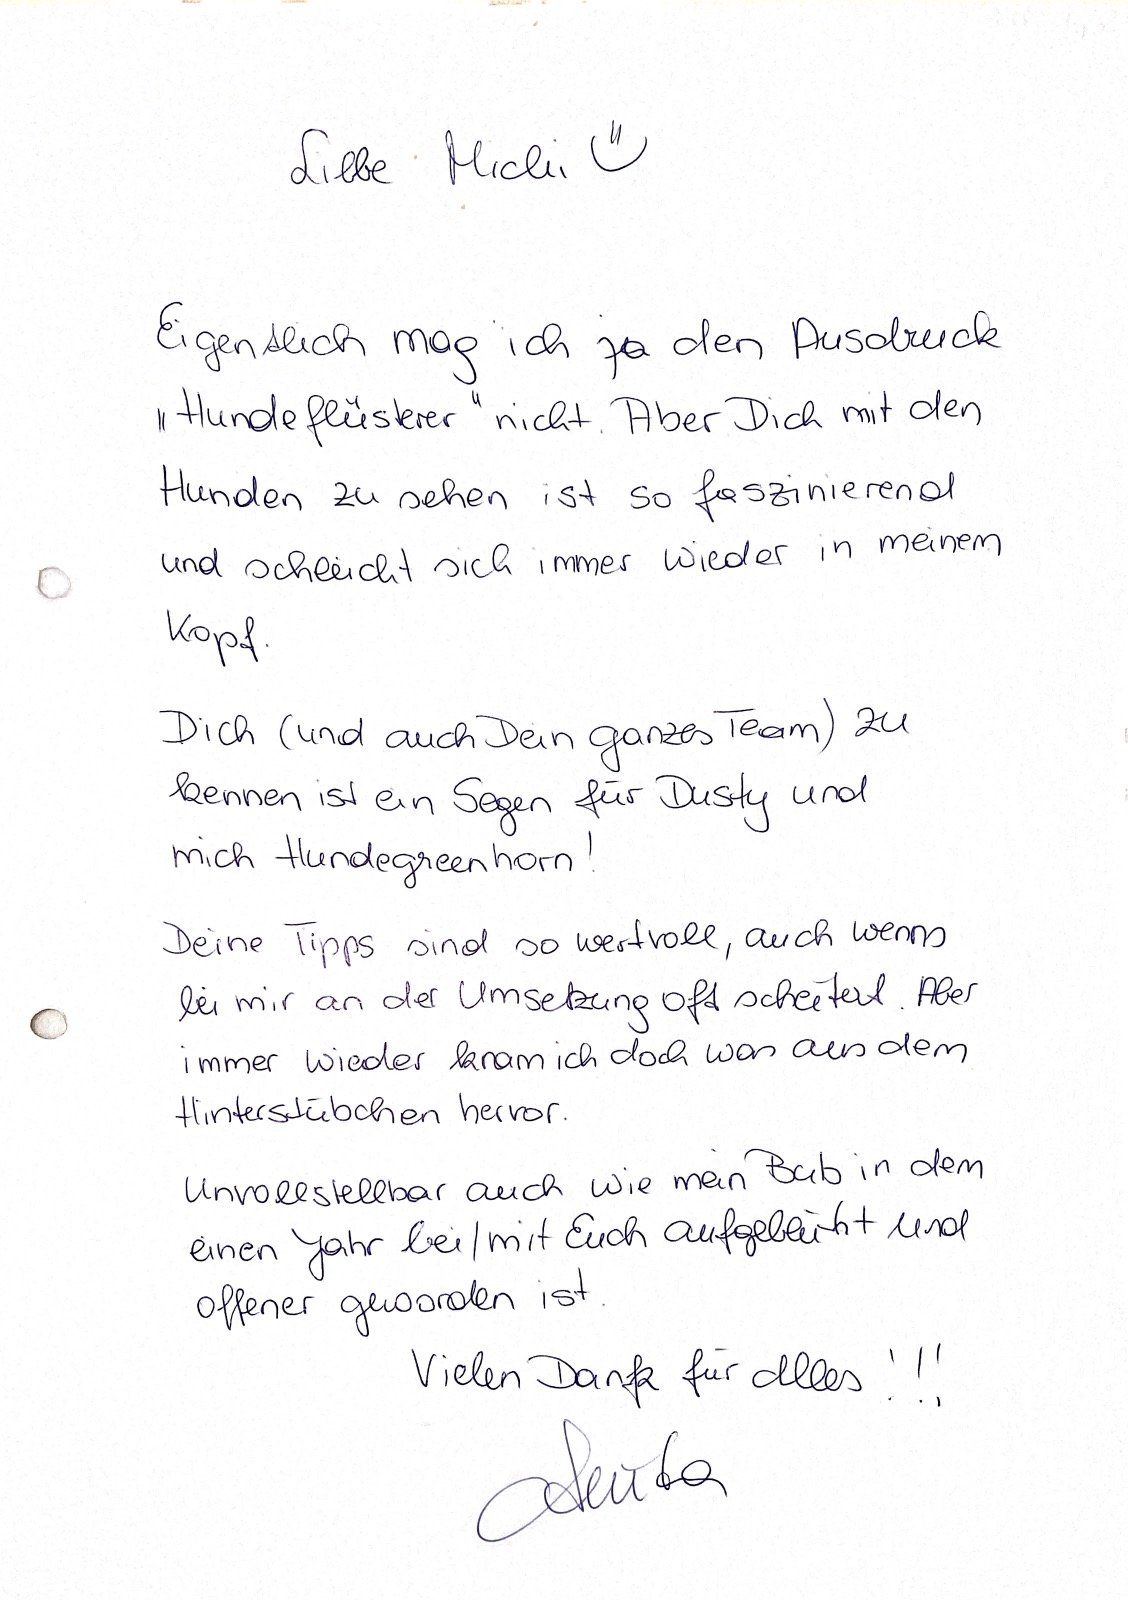 Liebe Michi
Eigentlich mag ich ja den Ausdruck
"Hundeflüsterer" nicht. Aber Dich mit den
Hunden zu sehen ist so faszinierend
und schleicht sich immer wieder in meinem
Kopf.
Dich (und auch Dein ganzes Team) zu
kennen ist ein Segen für Dusty und
mich Hundegreenhorn!
Deine Tipps sind so wertvoll, auch wenns
bei mir an der Umsetzung oft scheitert. Aber
immer wieder kram ich doch was aus dem
Hinterstübchen hervor.
Unvollstellbar auch wie mein Bub in dem
einen Jahr bei/mit Euch aufgeblüht und
offener geworden ist.
Vielen Dank für alles!!!